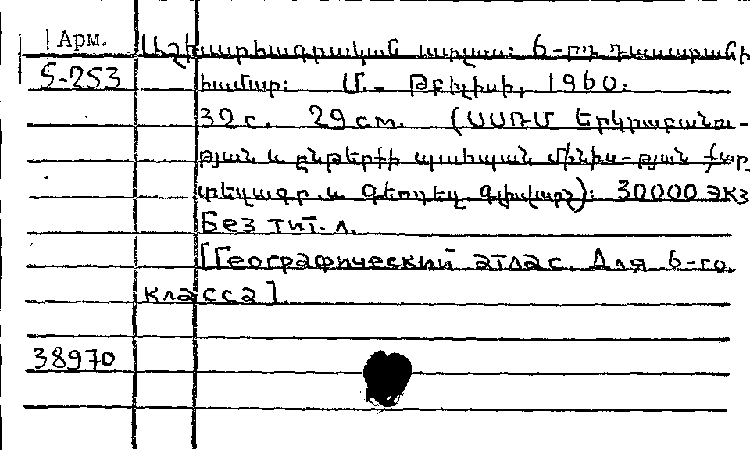 Арм. Աշխարհագրական ատլաս: 6-րդ դասարանի
5-253 համար: Մ.- Թբիլիսի, 1960.
32 с. 29 cm. (ՍՍՌՄ Երկրաբանու-
թյան և ընդերքի պահպան. մինիս-թյան քար
տեզագր. և Գեոդեզ. գլխվարչ): 30000 экз
Без тит. л.
[Географический атлас. Для 6-го
класса]
38970